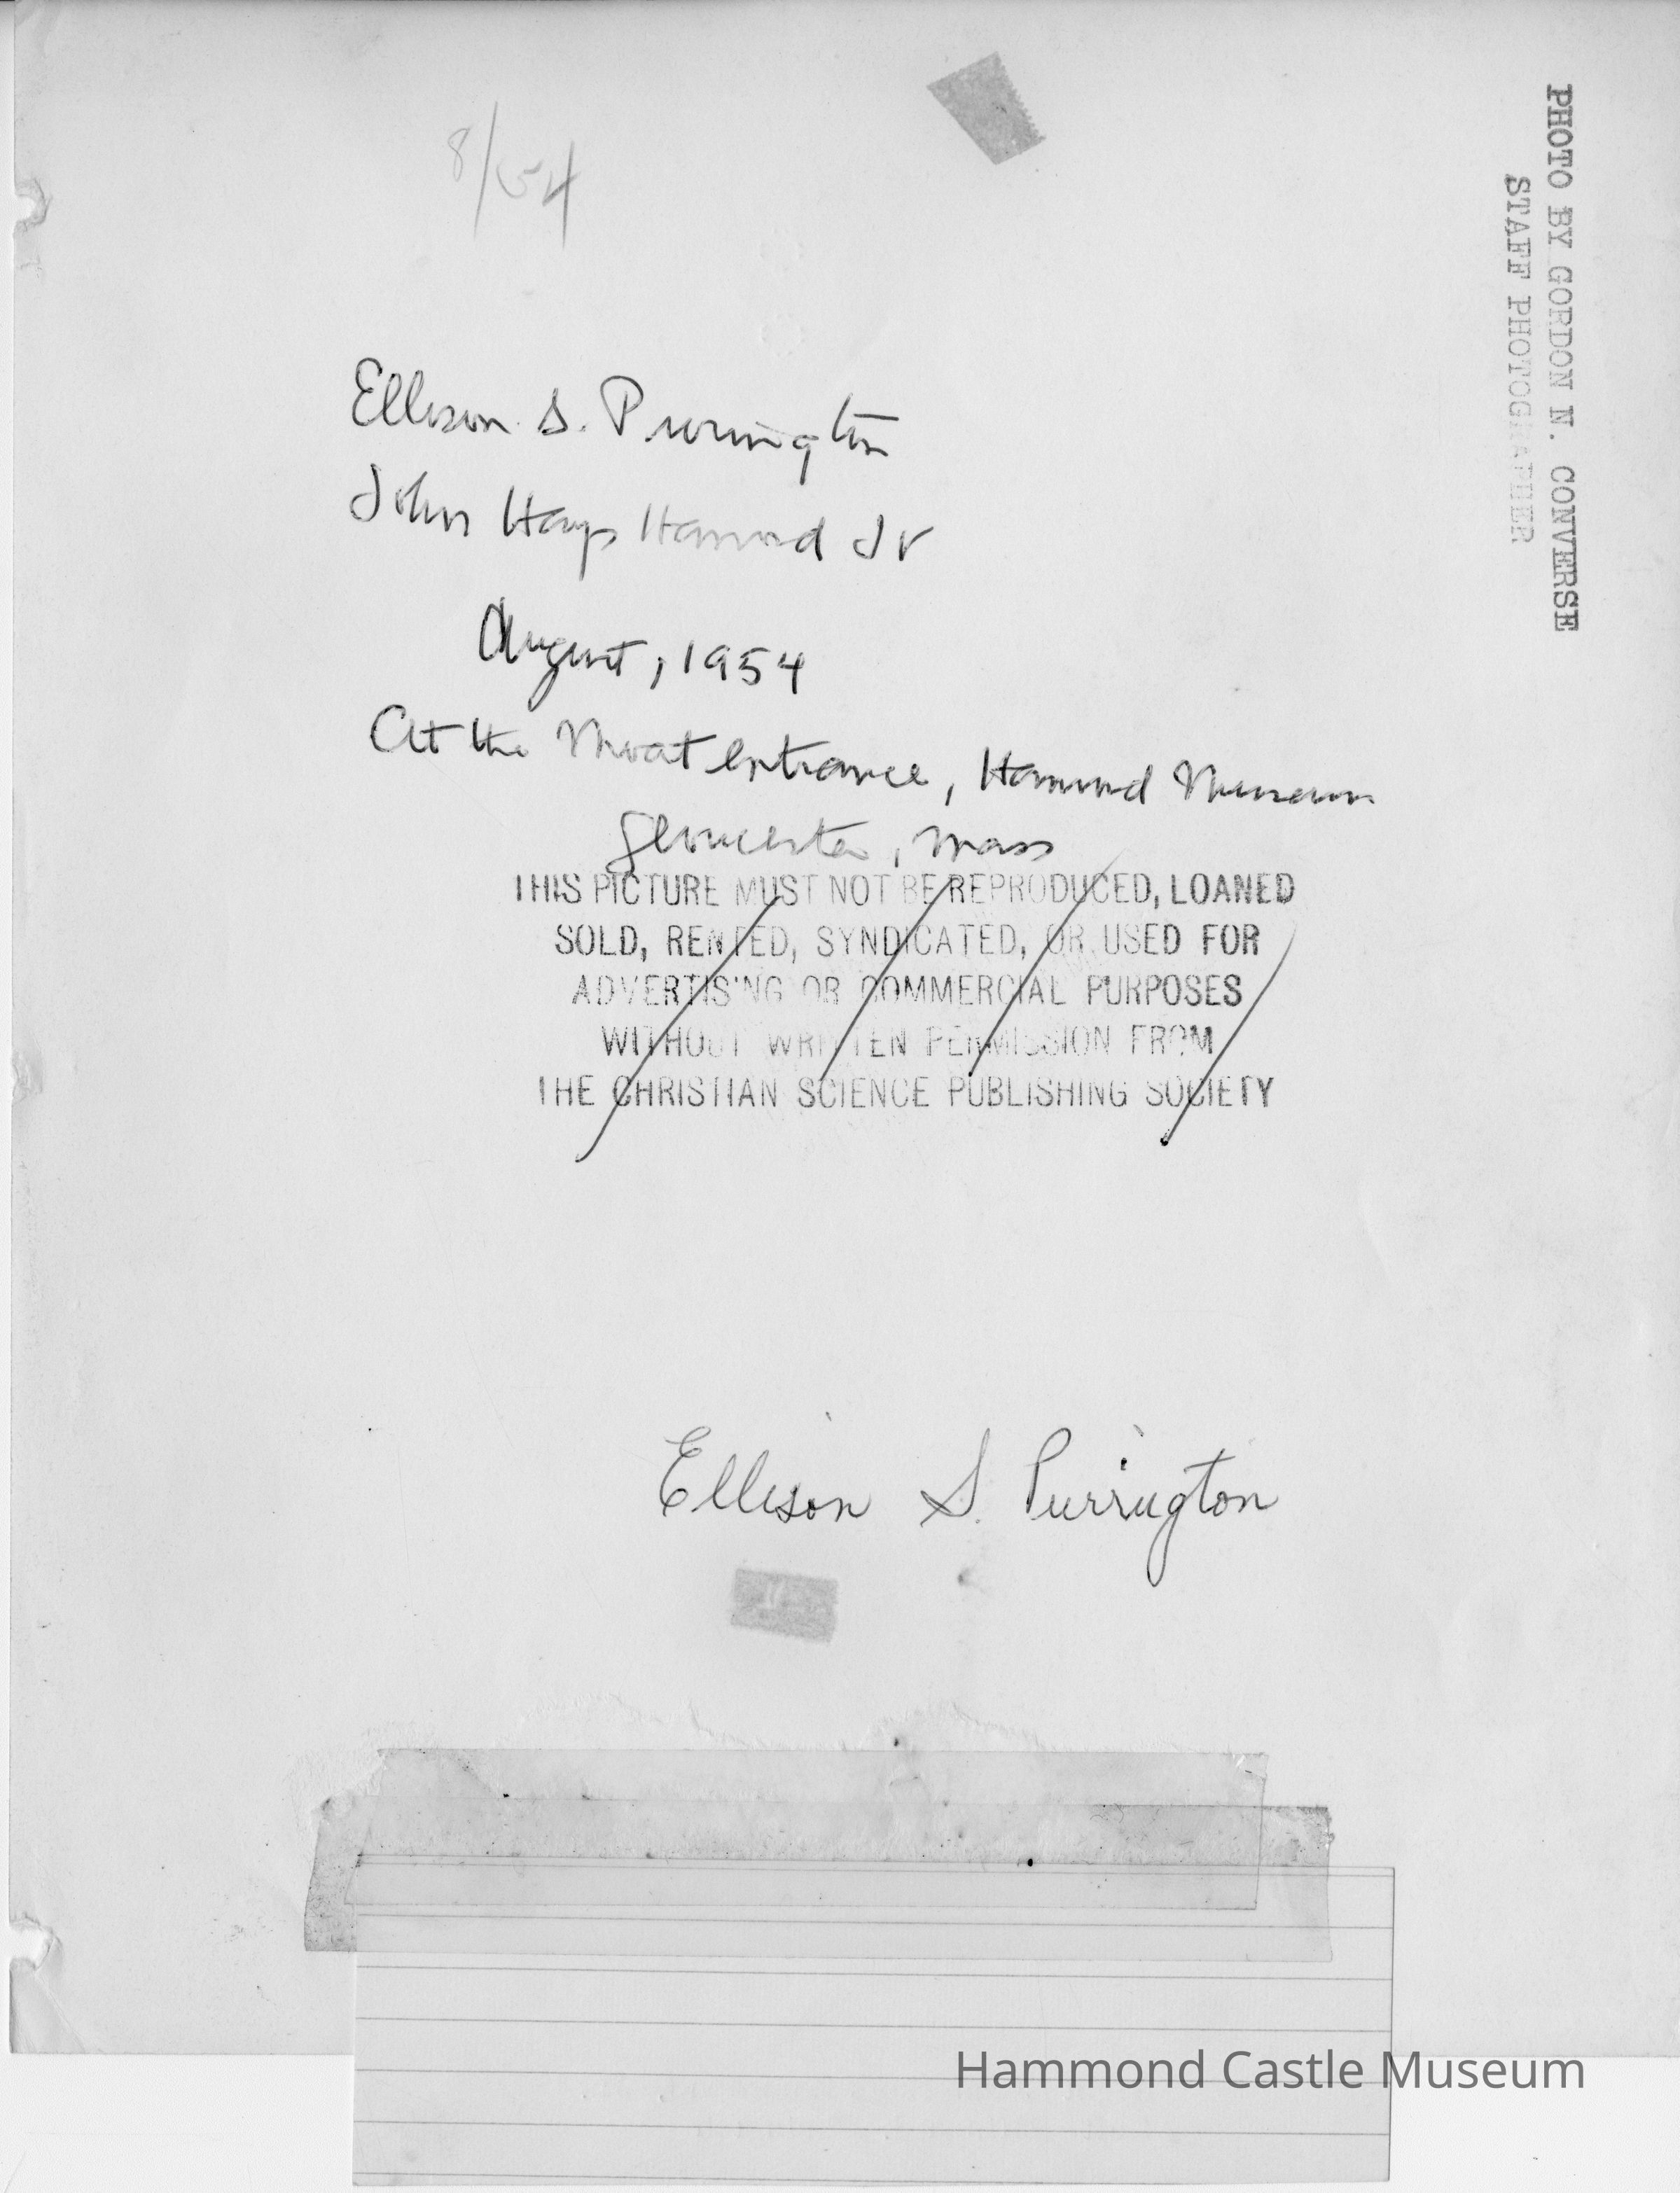 8/54
PHOTO BY GORDON N. CONVERSE
STAFF PHOTOGRAPHER
Ellison S. Purrington
John Hays Hammond Jr
August, 1954
At the Moat entrance, Hammond Museum
Gloucester, Mass
THIS PICTURE MUST NOT BE REPRODUCED, LOANED
SOLD, RENTED, SYNDICATED, OR USED FOR
ADVERTISING OR COMMERCIAL PURPOSES
WITHOUT WRITTEN PERMISSION FROM
THE CHRISTIAN SCIENCE PUBLISHING SOCIETY
Ellison S. Purrington
Hammond Castle Museum